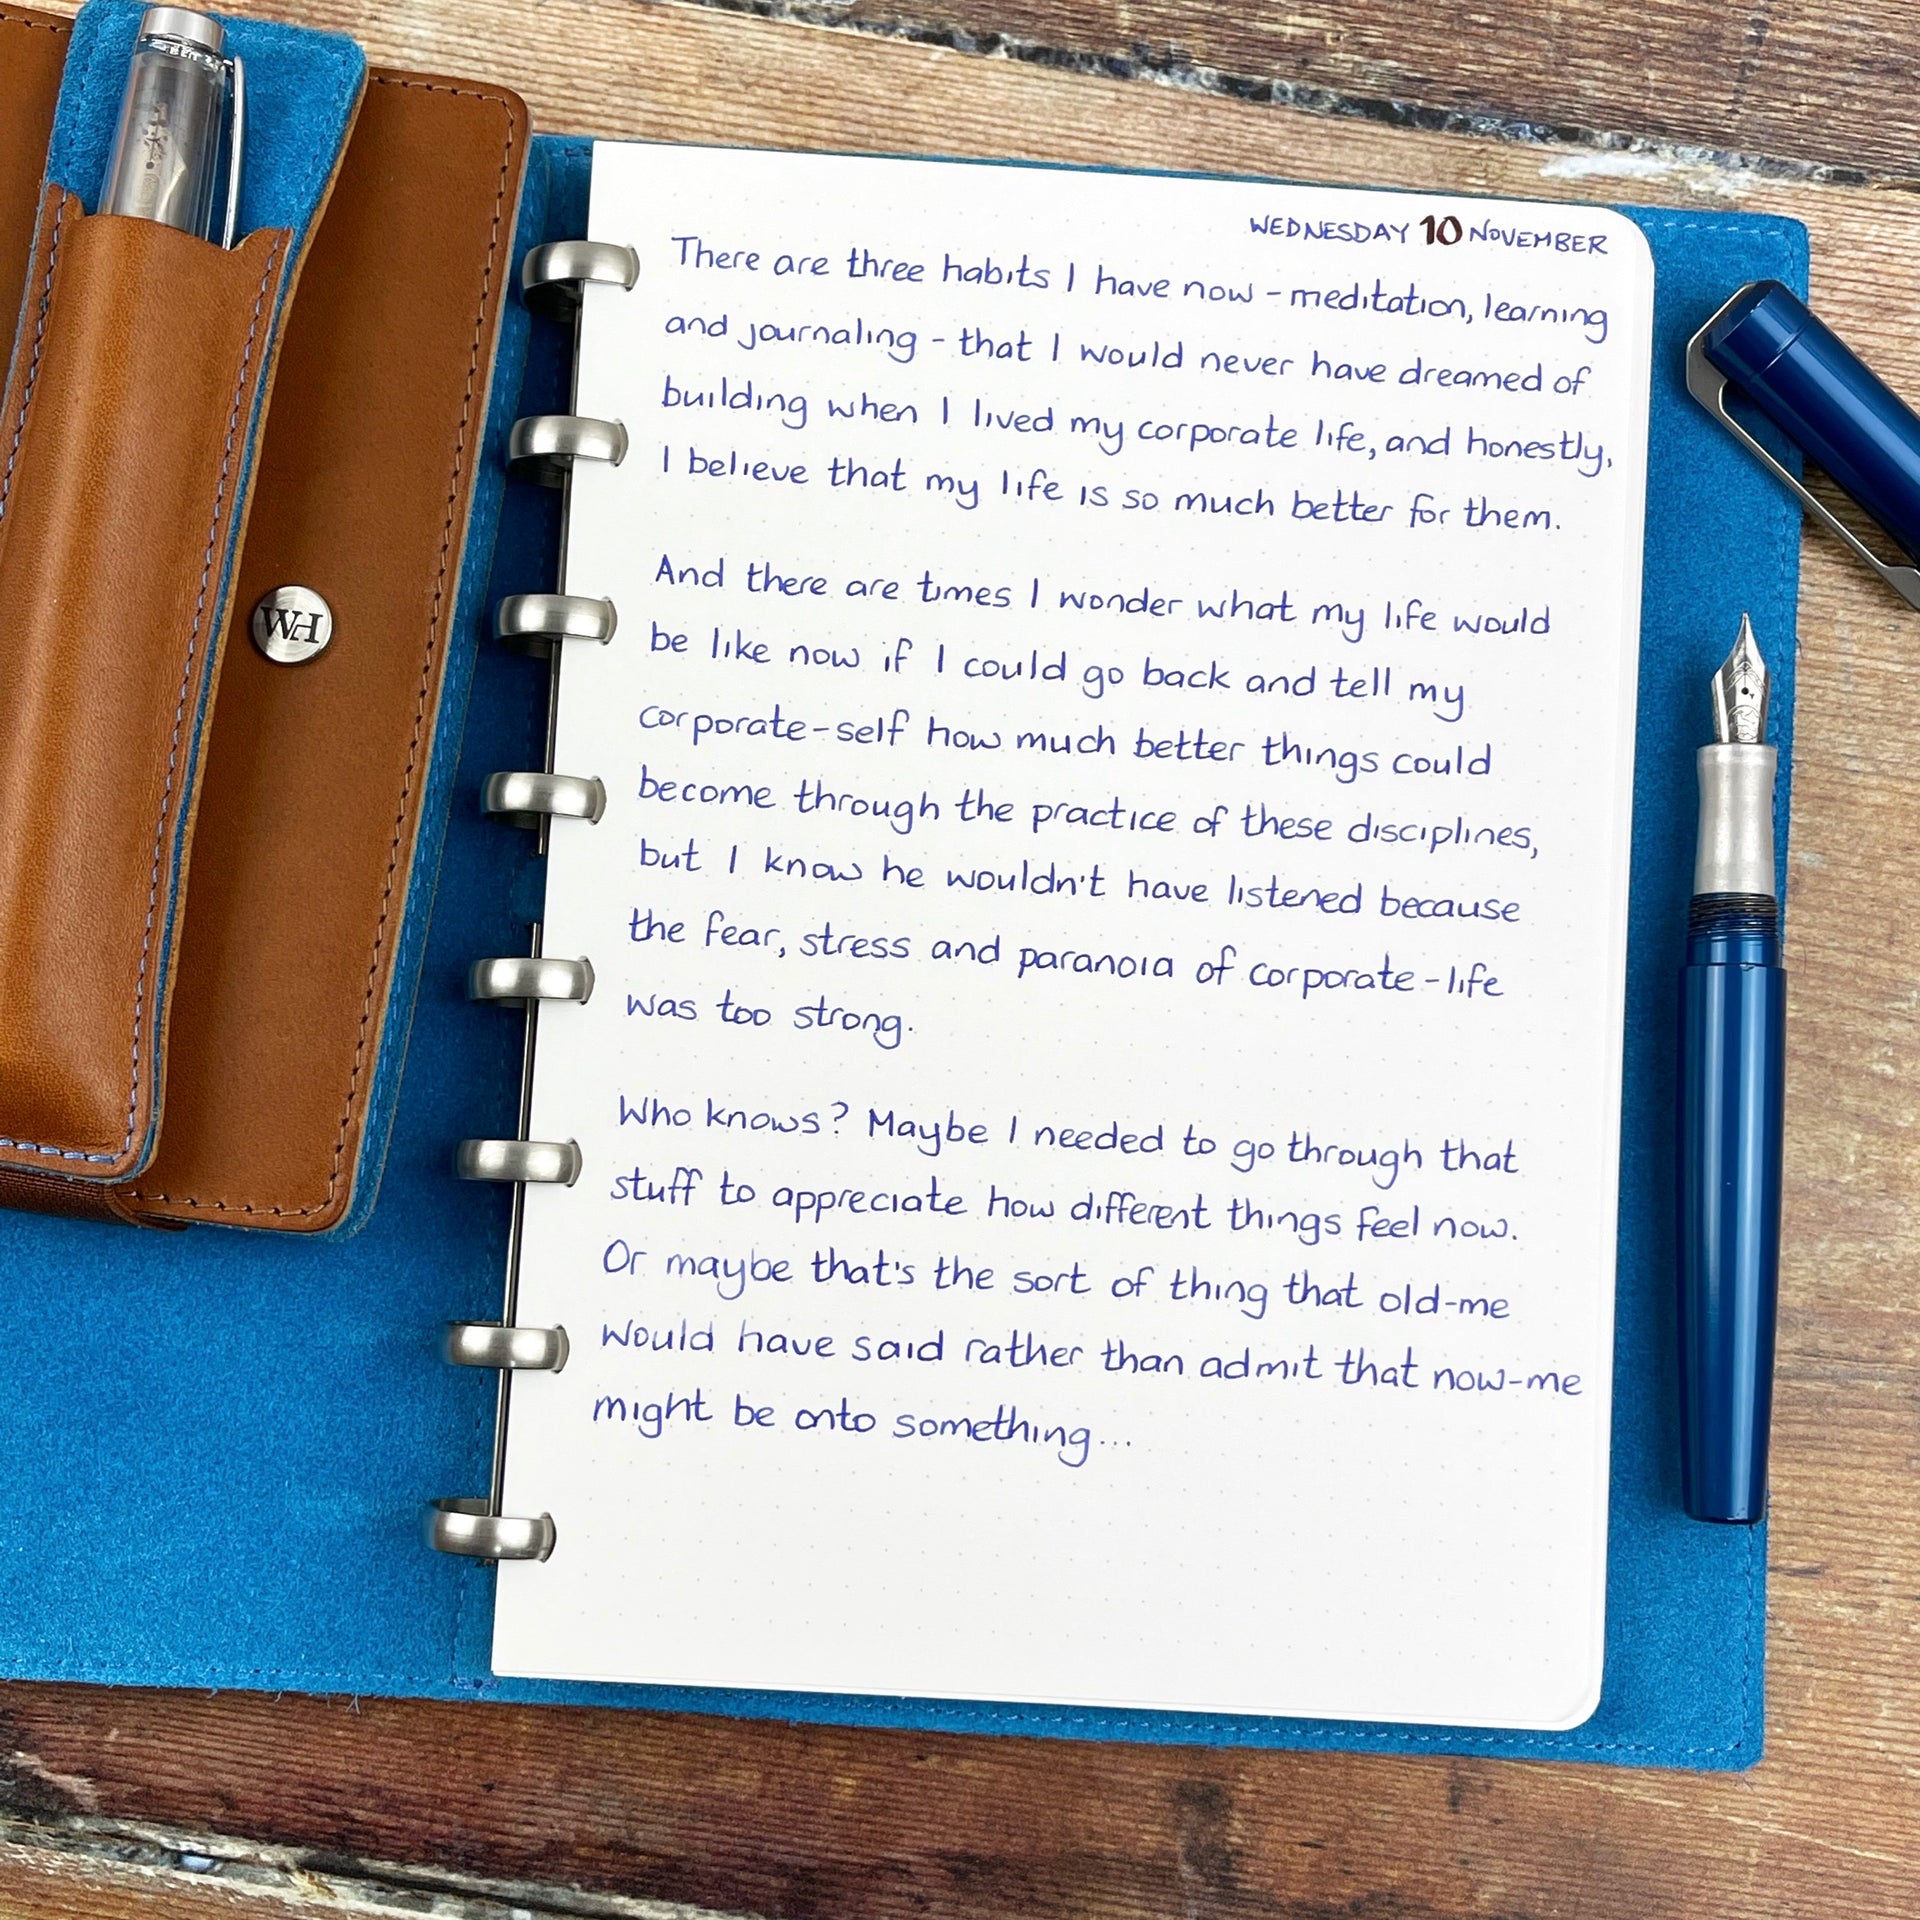 WH
WEDNESDAY 10 NOVEMBER
There are three habits I have now – meditation, learning
and journaling – that I would never have dreamed of
building when I lived my corporate life, and honestly,
I believe that my life is so much better for them.
And there are times I wonder what my life would
be like now if I could go back and tell my
corporate-self how much better things could
become through the practice of these disciplines,
but I know he wouldn't have listened because
the fear, stress and paranoia of corporate-life
was too strong.
Who knows? Maybe I needed to go through that
stuff to appreciate how different things feel now.
Or maybe that's the sort of thing that old-me
would have said rather than admit that now-me
might be onto something...